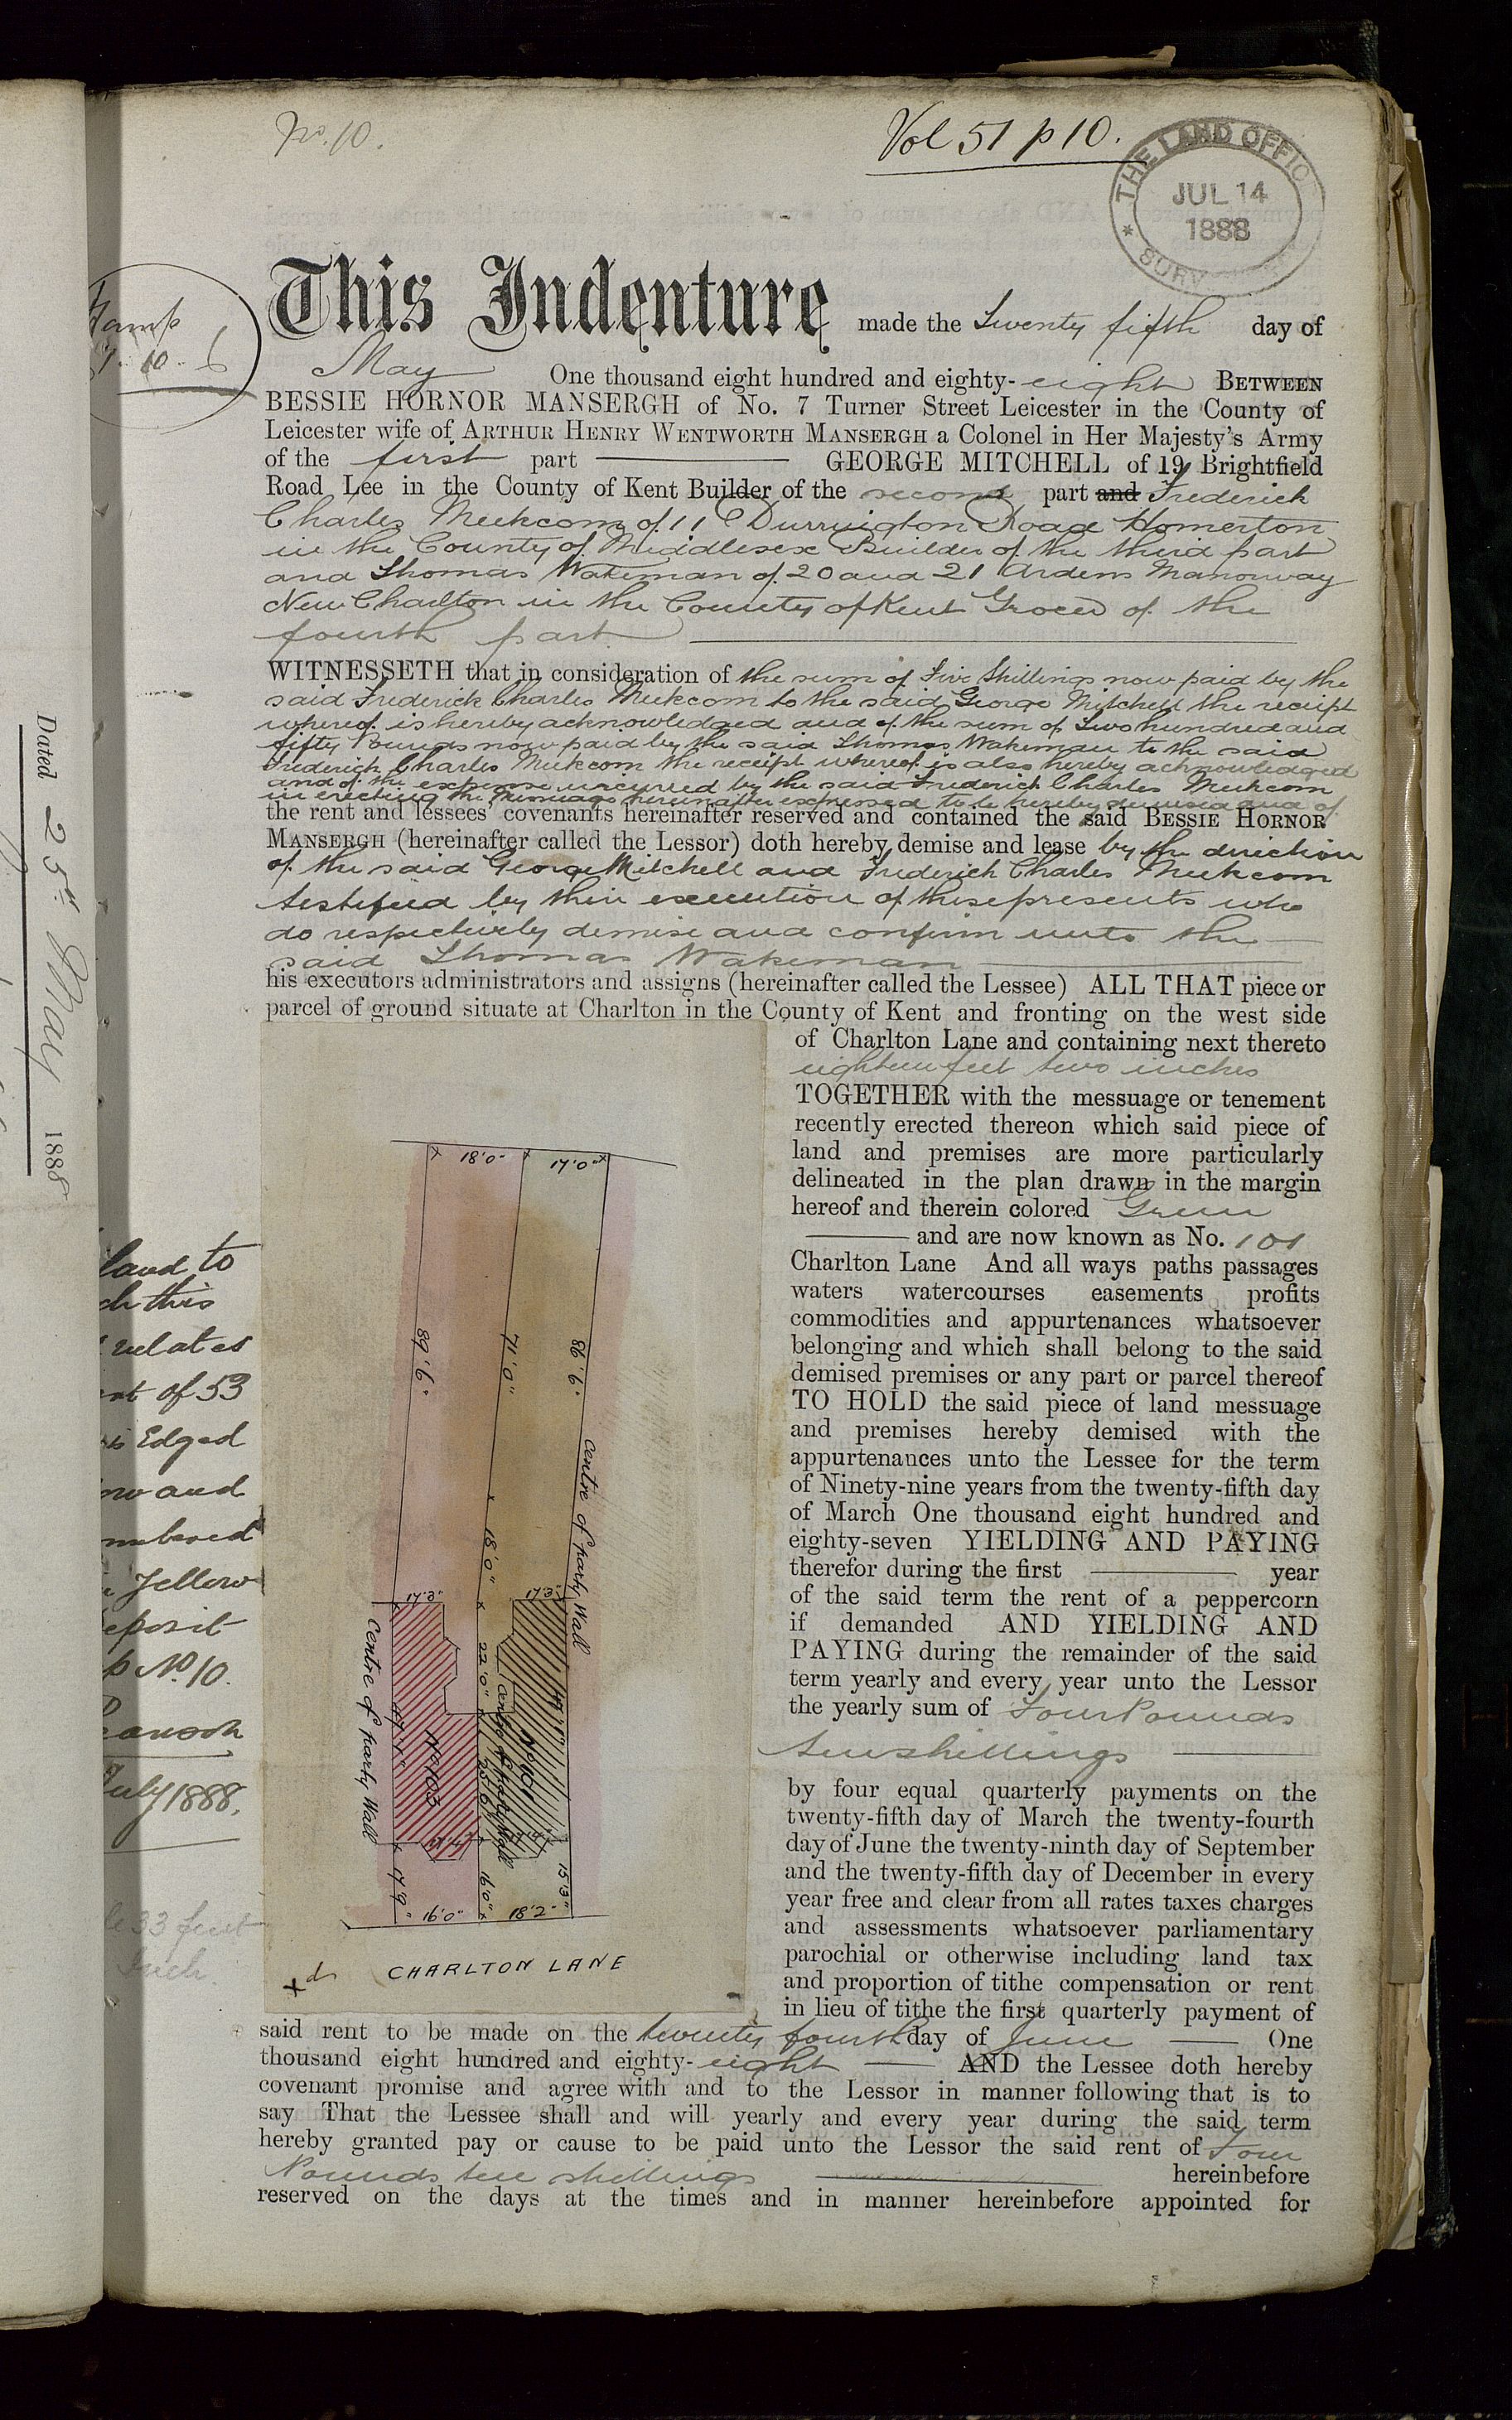 No. 10.
Vol 51 p 10.
THE LAND OFFIC
JUL 14
1888
SURV
This Indenture made the Twenty fifth day of
May One thousand eight hundred and eighty-eight BETWEEN
BESSIE HORNOR MANSERGH of No. 7 Turner Street Leicester in the County of
Leicester wife of ARTHUR HENRY WENTWORTH MANSERGH a Colonel in Her Majesty's Army
of the first part GEORGE MITCHELL of 19 Brightfield
Road Lee in the County of Kent Builder of the second part and Frederick
Charles Meekcom of 11 Durrington Road Homerton
in the County of Middlesex Builder of the third part
and Thomas Wakeman of 20 and 21 Ardens Manorway
New Charlton in the County of Kent Grocer of the
fourth part
WITNESSETH that in consideration of the sum of Five Shillings now paid by the
said Frederick Charles Meekcom to the said George Mitchell the receipt
whereof is hereby acknowledged and of the sum of Two hundred and
fifty Pounds now paid by the said Thomas Wakeman to the said
Frederick Charles Meekcom the receipt whereof is also hereby acknowledged
and of the expense incurred by the said Frederick Charles Meekcom
in erecting the Messuage hereinafter expressed to be hereby demised and of
the rent and lessees' covenants hereinafter reserved and contained the said BESSIE HORNOR
MANSERGH (hereinafter called the Lessor) doth hereby demise and lease by the direction
of the said George Mitchell and Frederick Charles Meekcom
testified by their execution of these presents who
do respectively demise and confirm unto the
said Thomas Wakeman
his executors administrators and assigns (hereinafter called the Lessee) ALL THAT piece or
parcel of ground situate at Charlton in the County of Kent and fronting on the west side
of Charlton Lane and containing next thereto
eighteen feet two inches
TOGETHER with the messuage or tenement
recently erected thereon which said piece of
land and premises are more particularly
delineated in the plan drawn in the margin
hereof and therein colored Green
and are now known as No. 101
Charlton Lane And all ways paths passages
waters watercourses easements profits
commodities and appurtenances whatsoever
belonging and which shall belong to the said
demised premises or any part or parcel thereof
TO HOLD the said piece of land messuage
and premises hereby demised with the
appurtenances unto the Lessee for the term
of Ninety-nine years from the twenty-fifth day
of March One thousand eight hundred and
eighty-seven YIELDING AND PAYING
therefor during the first year
of the said term the rent of a peppercorn
if demanded AND YIELDING AND
PAYING during the remainder of the said
term yearly and every year unto the Lessor
the yearly sum of Four Pounds
ten shillings
by four equal quarterly payments on the
twenty-fifth day of March the twenty-fourth
day of June the twenty-ninth day of September
and the twenty-fifth day of December in every
year free and clear from all rates taxes charges
and assessments whatsoever parliamentary
parochial or otherwise including land tax
and proportion of tithe compensation or rent
in lieu of tithe the first quarterly payment of
said rent to be made on the twenty fourth day of June One
thousand eight hundred and eighty-eight AND the Lessee doth hereby
covenant promise and agree with and to the Lessor in manner following that is to
say That the Lessee shall and will yearly and every year during the said term
hereby granted pay or cause to be paid unto the Lessor the said rent of Four
Pounds ten shillings hereinbefore
reserved on the days at the times and in manner hereinbefore appointed for
18'0" 17'0"
89'.6"
71'.0"
86'.6"
Centre of party Wall
18'.0"
17'.3" 17'.3"
22'.0"
Centre of party Wall
Centre of party Wall
No 103
No 101
17'9"
16'0"
15'3"
16'0" 18'2"
CHARLTON LANE
Dated 25th May 1888
land to
ch this
relates
of 53
Edged
and
mbered
Yellow
eposit
p No. 10.
July 1888.
33 feet